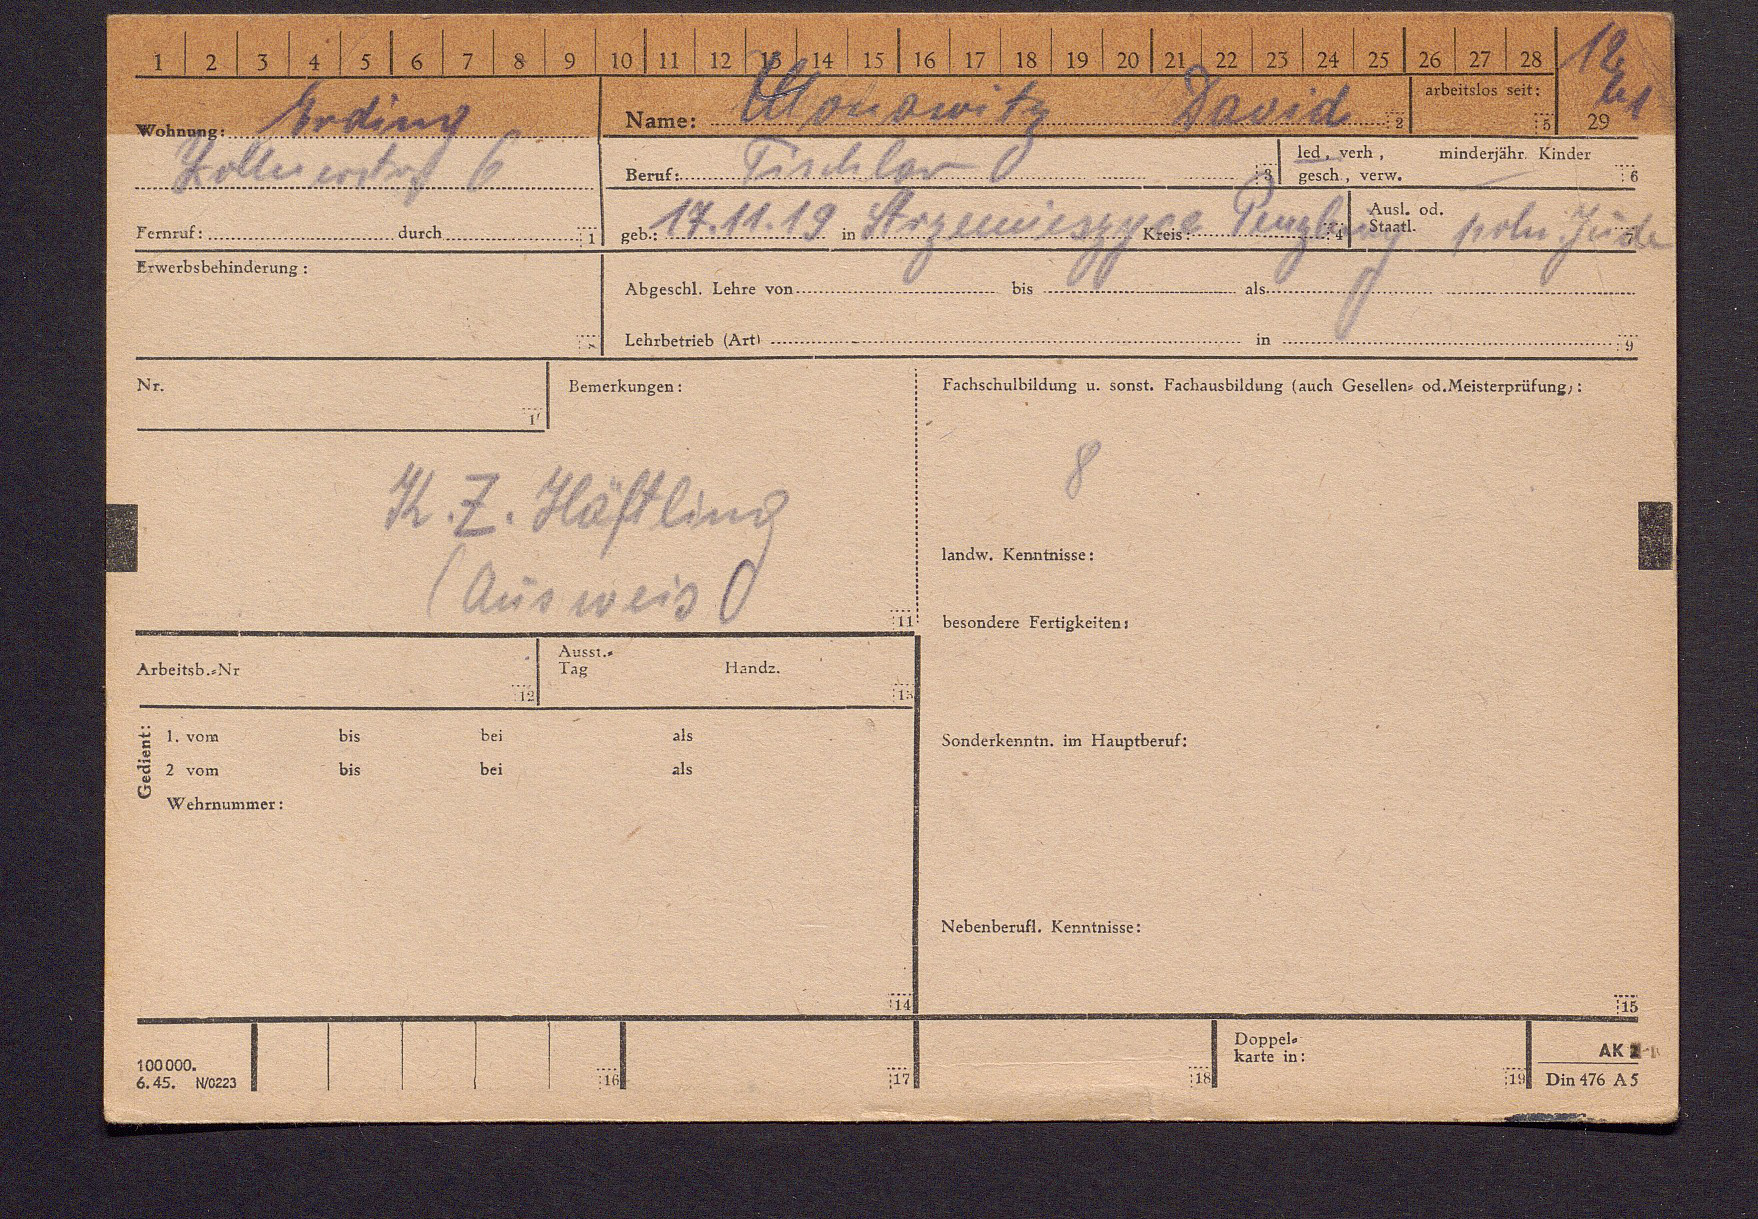 1 2 3 4 5 6 7 8 9 10 11 12 13 14 15 16 17 18 19 20 21 22 23 24 25 26 27 28
12
29
Wohnung: Erding
6
Name: David 2
arbeitslos seit: 5
Beruf: Tischler 3
led., verh., minderjähr. Kinder
gesch., verw. 6
Fernruf: durch 1
geb.: 17.11.19 in Kreis: 4
Ausl. od.
Staatl. poln. Jude 7
Erwerbsbehinderung:
Abgeschl. Lehre von bis als
Lehrbetrieb (Art) in 9
Nr.
Bemerkungen:
K.Z. Häftling
(Ausweis)
11
Fachschulbildung u. sonst. Fachausbildung (auch Gesellen= od.Meisterprüfung):
8
landw. Kenntnisse:
besondere Fertigkeiten:
Sonderkenntn. im Hauptberuf:
Nebenberufl. Kenntnisse:
15
Arbeitsb.=Nr 12
Ausst.=
Tag Handz. 13
Gedient:
1. vom bis bei als
2 vom bis bei als
Wehrnummer:
14
100000.
6.45. N/0223
16
17
18
Doppel=
karte in:
19
AK
Din 476 A5